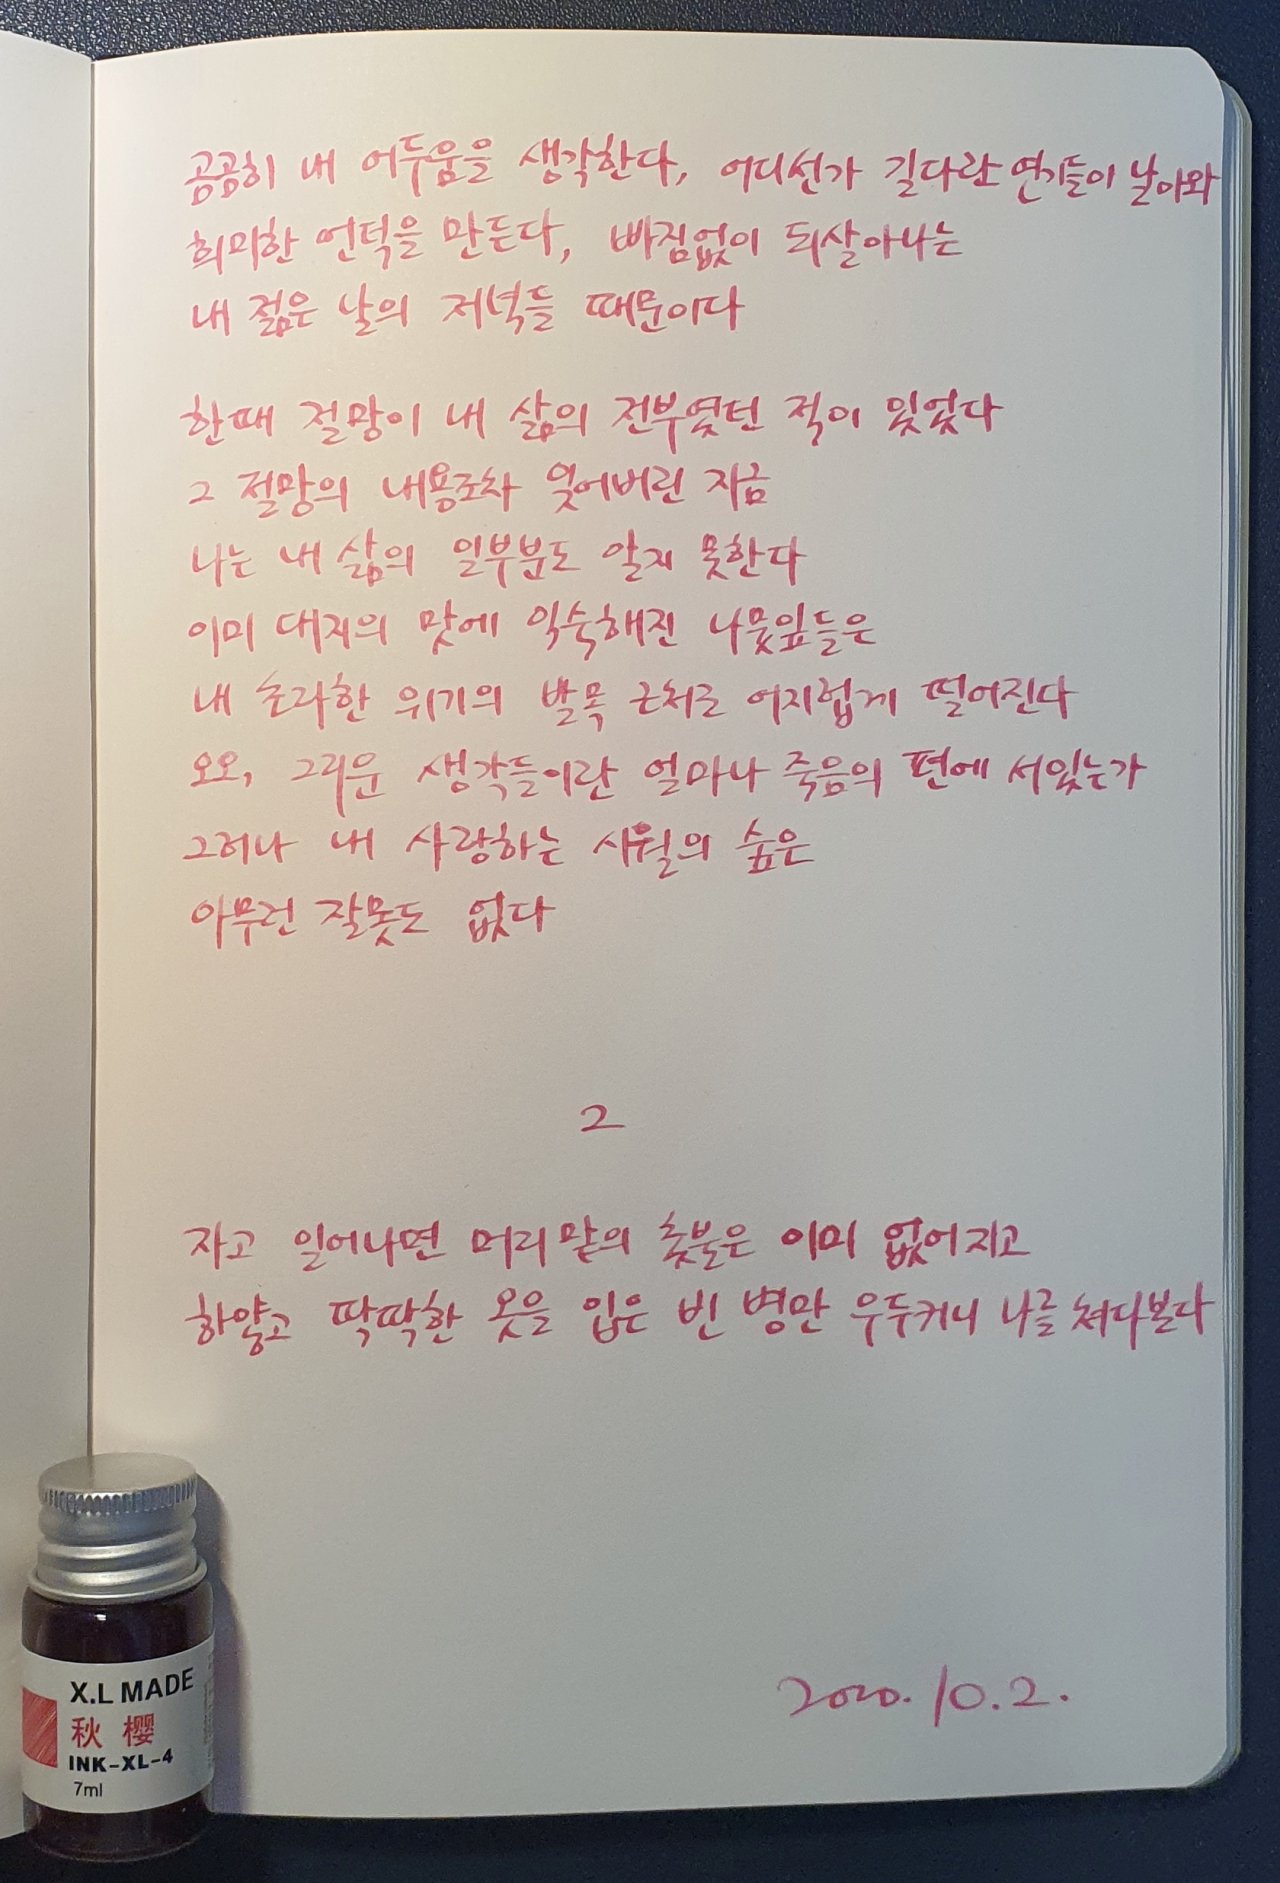 곰곰히 내 어두움을 생각한다, 어디선가 길다란 연기들이 날아와
희미한 언덕을 만든다, 빠짐없이 되살아나는
내 젊은 날의 저녁들 때문이다
한때 절망이 내 삶의 전부였던 적이 있었다
그 절망의 내용조차 잊어버린 지금
나는 내 삶의 일부분도 알지 못한다
이미 대지의 맛에 익숙해진 나뭇잎들은
내 초라한 위기의 발목 근처로 어지럽게 떨어진다
오오, 그리운 생각들이란 얼마나 죽음의 편에 서있는가
그러나 내 사랑하는 시월의 숲은
아무런 잘못도 없다
2
자고 일어나면 머리맡의 촛불은 이미 없어지고
하얗고 딱딱한 옷을 입은 빈 병만 우두커니 나를 쳐다본다
2020. 10. 2.
X.L MADE
秋 樱
INK-XL-4
7ml